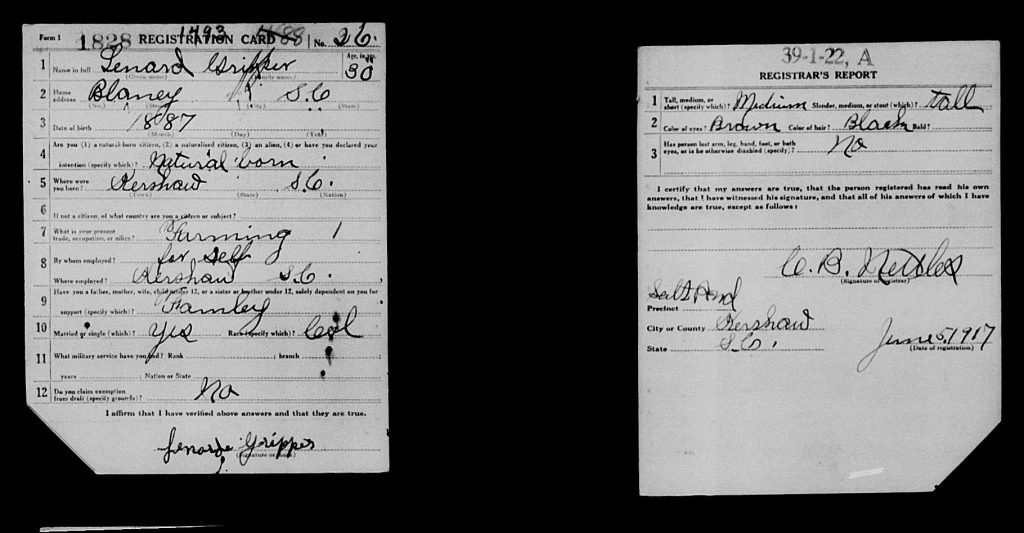 1493 1488
Form 1 1828 REGISTRATION CARD No. 26
1 Name in full Lenard Gripper Age, in yrs. 30
(Given name) (Family name)
2 Home address Blaney S.C
(No.) (Street) (City) (State)
3 Date of birth 1887
(Month) (Day) (Year)
4 Are you (1) a natural-born citizen, (2) a naturalized citizen, (3) an alien, (4) or have you declared your
intention (specify which)? Natural born
5 Where were you born? Kershaw S.C.
(Town) (State) (Nation)
6 If not a citizen, of what country are you a citizen or subject?
7 What is your present trade, occupation, or office? Farming 1
8 By whom employed? for self
Where employed? Kershaw S.C.
9 Have you a father, mother, wife, child under 12, or a sister or brother under 12, solely dependent on you for
support (specify which)? Famley
10 Married or single (which)? yes Race (specify which)? Col
11 What military service have you had? Rank ; branch
years ; Nation or State
12 Do you claim exemption from draft (specify grounds)? No
I affirm that I have verified above answers and that they are true.
Lenarde Gripper
(Signature or mark)
39-1-22, A
REGISTRAR'S REPORT
1 Tall, medium, or short (specify which)? Medium Slender, medium, or stout (which)? tall
2 Color of eyes? Brown Color of hair? Black Bald?
3 Has person lost arm, leg, hand, foot, or both eyes, or is he otherwise disabled (specify)? No
I certify that my answers are true, that the person registered has read his own
answers, that I have witnessed his signature, and that all of his answers of which I have
knowledge are true, except as follows:
C. B. Nettles
(Signature of registrar)
Salt Pond
Precinct
City or County Kershaw
State S.C. June 5, 1917
(Date of registration)